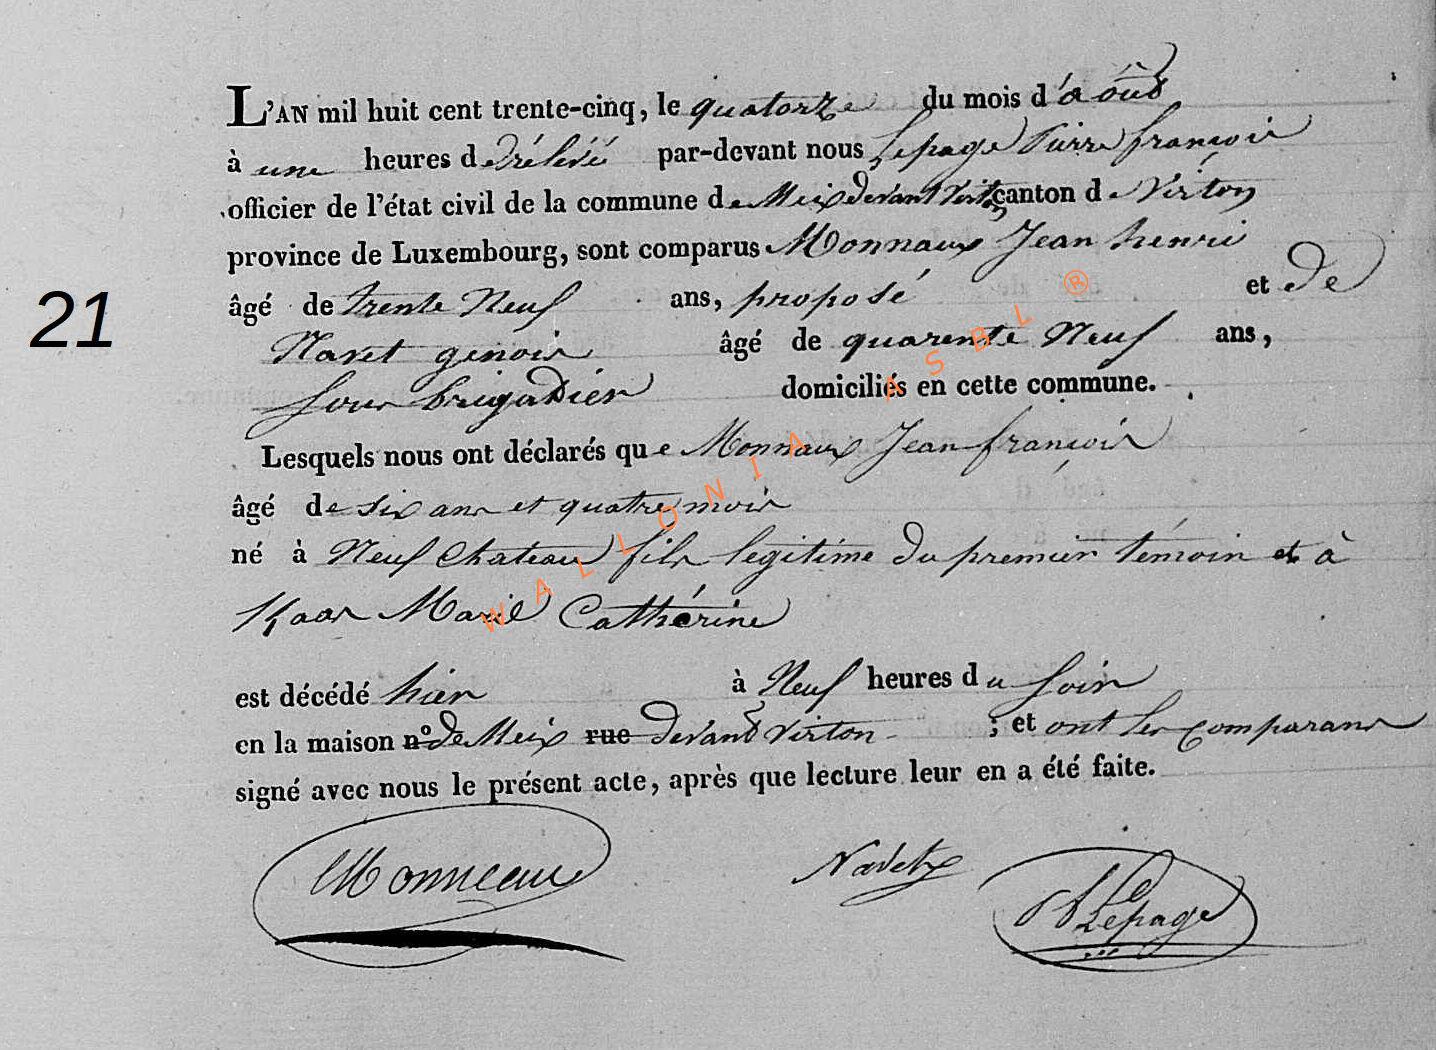 L'AN mil huit cent trente-cinq, le quatorze du mois d'août
à une heures de rélevé par-devant nous Lepage Pierre françois
officier de l'état civil de la commune de Meix devant Virton canton de Virton
province de Luxembourg, sont comparus Monnaux Jean henri
âgé de trente Neuf ans, proposé et de
21
Navet genoix âgé de quarente Neuf ans,
Sous brigadier domiciliés en cette commune.
Lesquels nous ont déclarés que Monnaux Jean françois
âgé de six ans et quatre mois
né à Neuf Chateau fils legitime du premier témoin et à
Kaas Marie Cathérine
est décédé hier à Neuf heures du soir
en la maison n° de Meix rue devant Virton ; et ont les comparans
signé avec nous le présent acte, après que lecture leur en a été faite.
Monneau Navet Lepage
WALLONIA ASBL ®